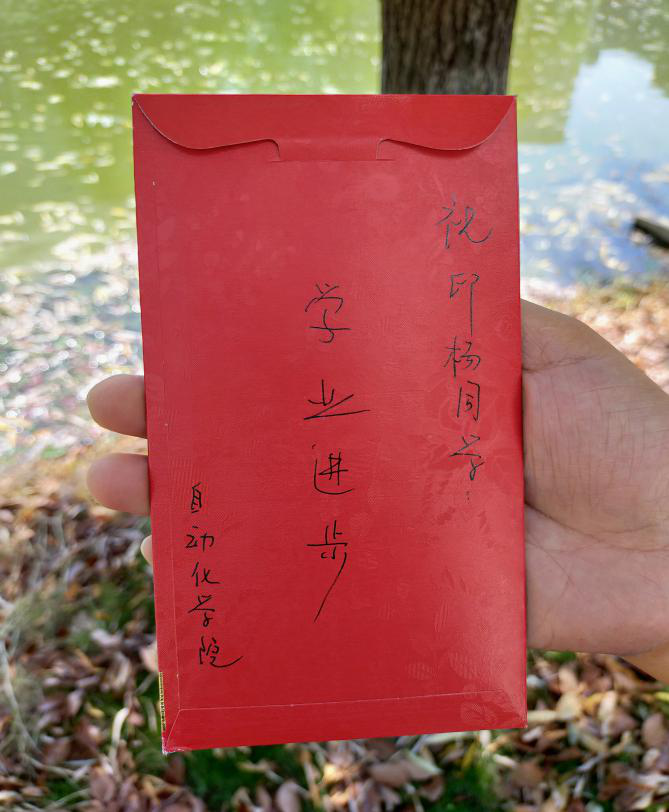 祝印杨同学：
学业进步
自动化学院